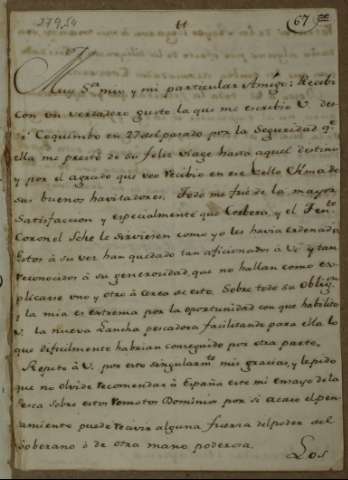 279,54
67
Muy Sr. mio y mi particular Amigo: Recibi
con un verdadero gusto la que me escribio V. des
de Coquimbo en 27 del pasado por la Seguridad qe.
ella me prestó de su feliz viage hasta aquel destino
y por el agrado que Vm recibio en ese bello Clima de
sus buenos havitadores. Todo me fué de la mayor
Satisfaccion y especialmente que y el Tente.
Coronel le sirviesen como yo les havia ordenado
Estos à su vez han quedado tan aficionados à V. y tan
reconocidos à su generosidad, que no hallan como ex-
plicarse uno y otro à cerca de esto. Sobre todo su
y la mia es extrema por la oportunidad con que habilitó
V. la nueva Lancha pescadora facilitando para ella lo
que dificilmente habrian conseguido por otra parte.
Repito à V. por esto singularmte. mis gracias, y le pido
que no olvide recomendar à España este mi ensayo de la
Pesca sobre estos remotos Dominios por si acaso el pen-
samiento puede recivir alguna fuerza del poder del
Soberano ò de otra mano poderosa.
Los